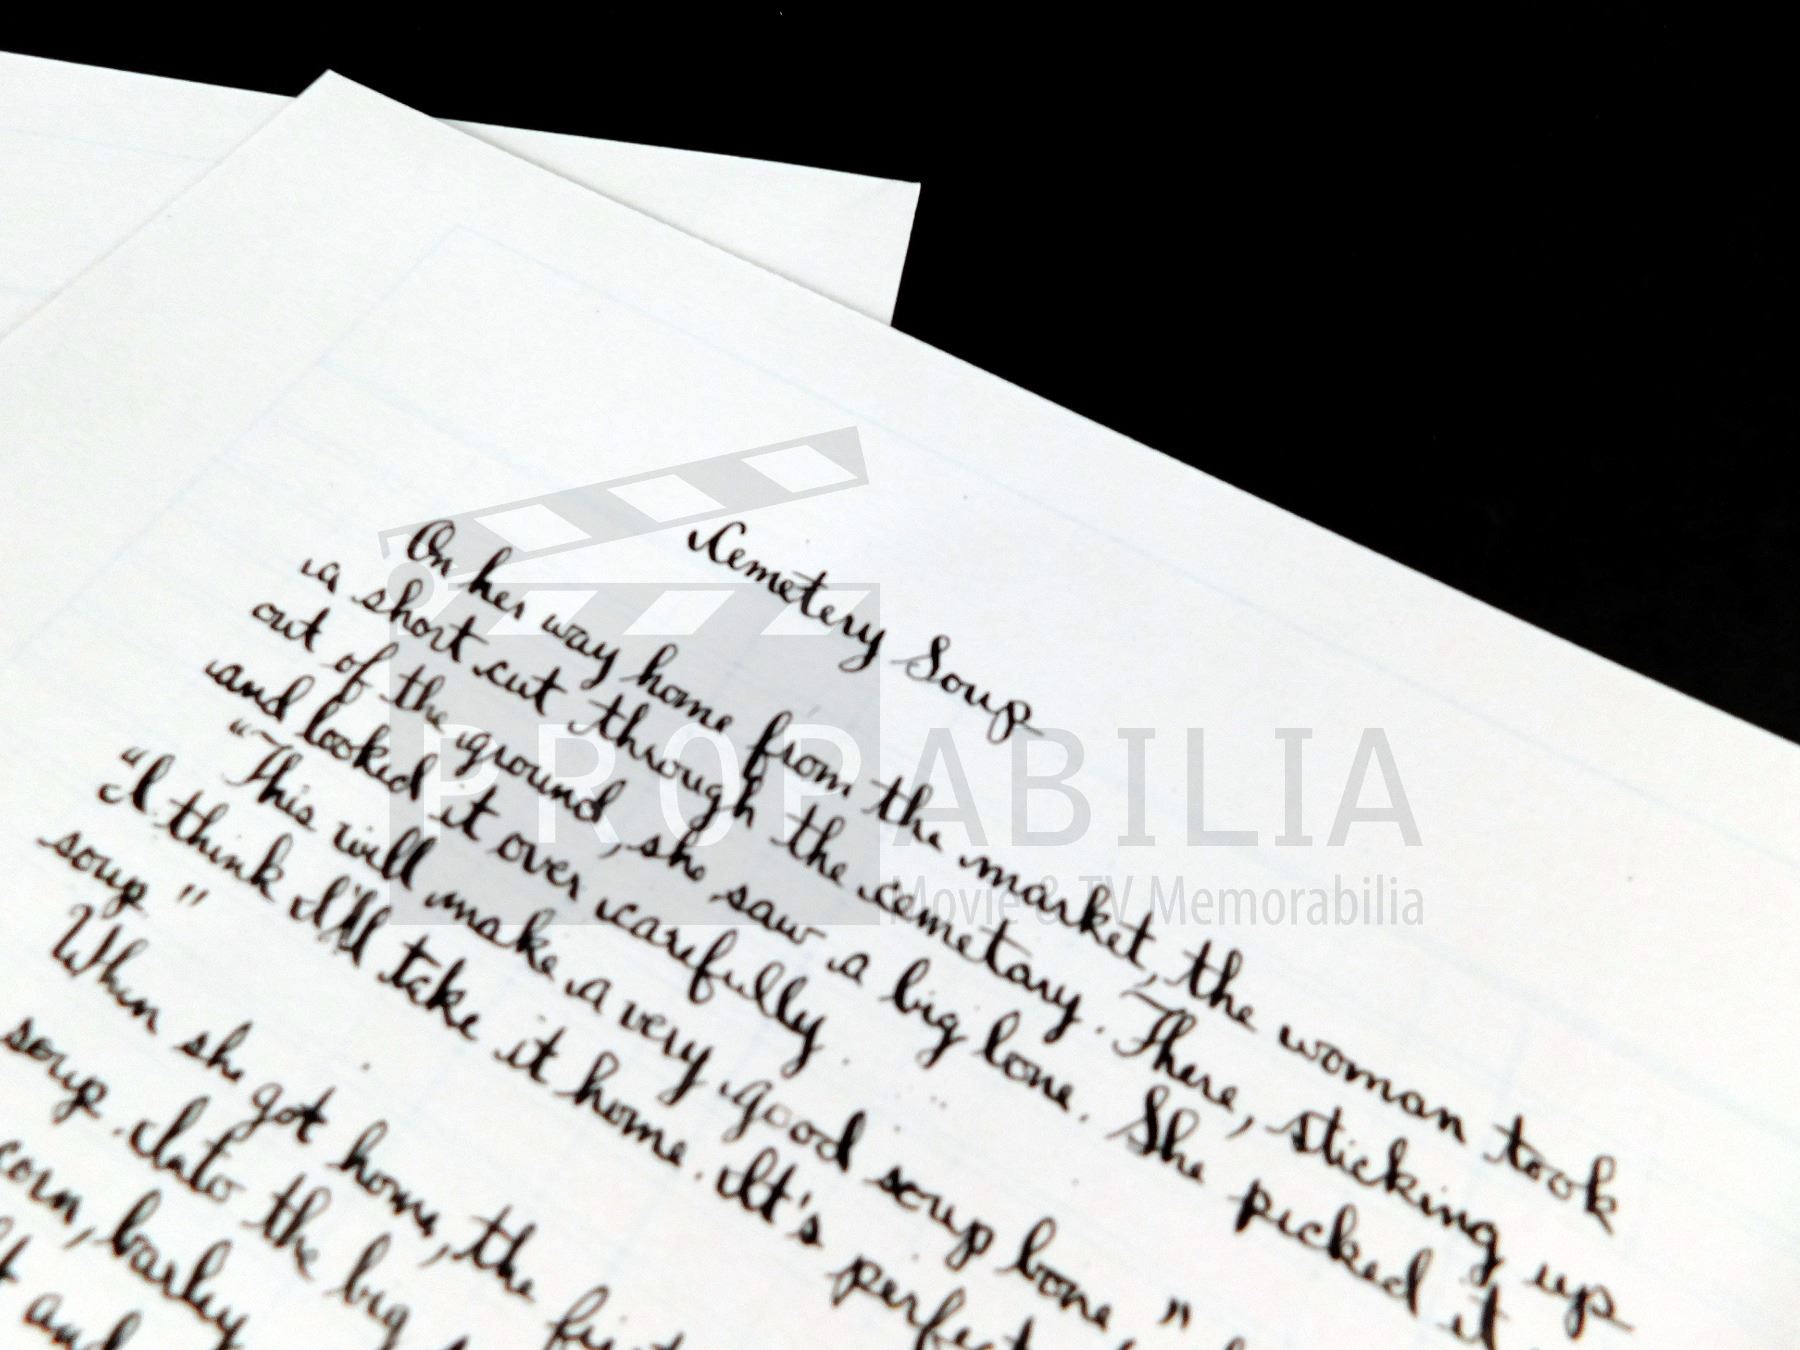 Cemetery Soup
On her way home from the market, the woman took
a short cut through the cemetary. There, sticking up
out of the ground, she saw a big bone. She picked it
and looked it over carefully.
"This will make a very good soup bone,"
"I think I'll take it home. It's perfect
soup"
When she got home, the first
soup. Into the big
corn, barley
and
PROPABILIA
Movie & TV Memorabilia